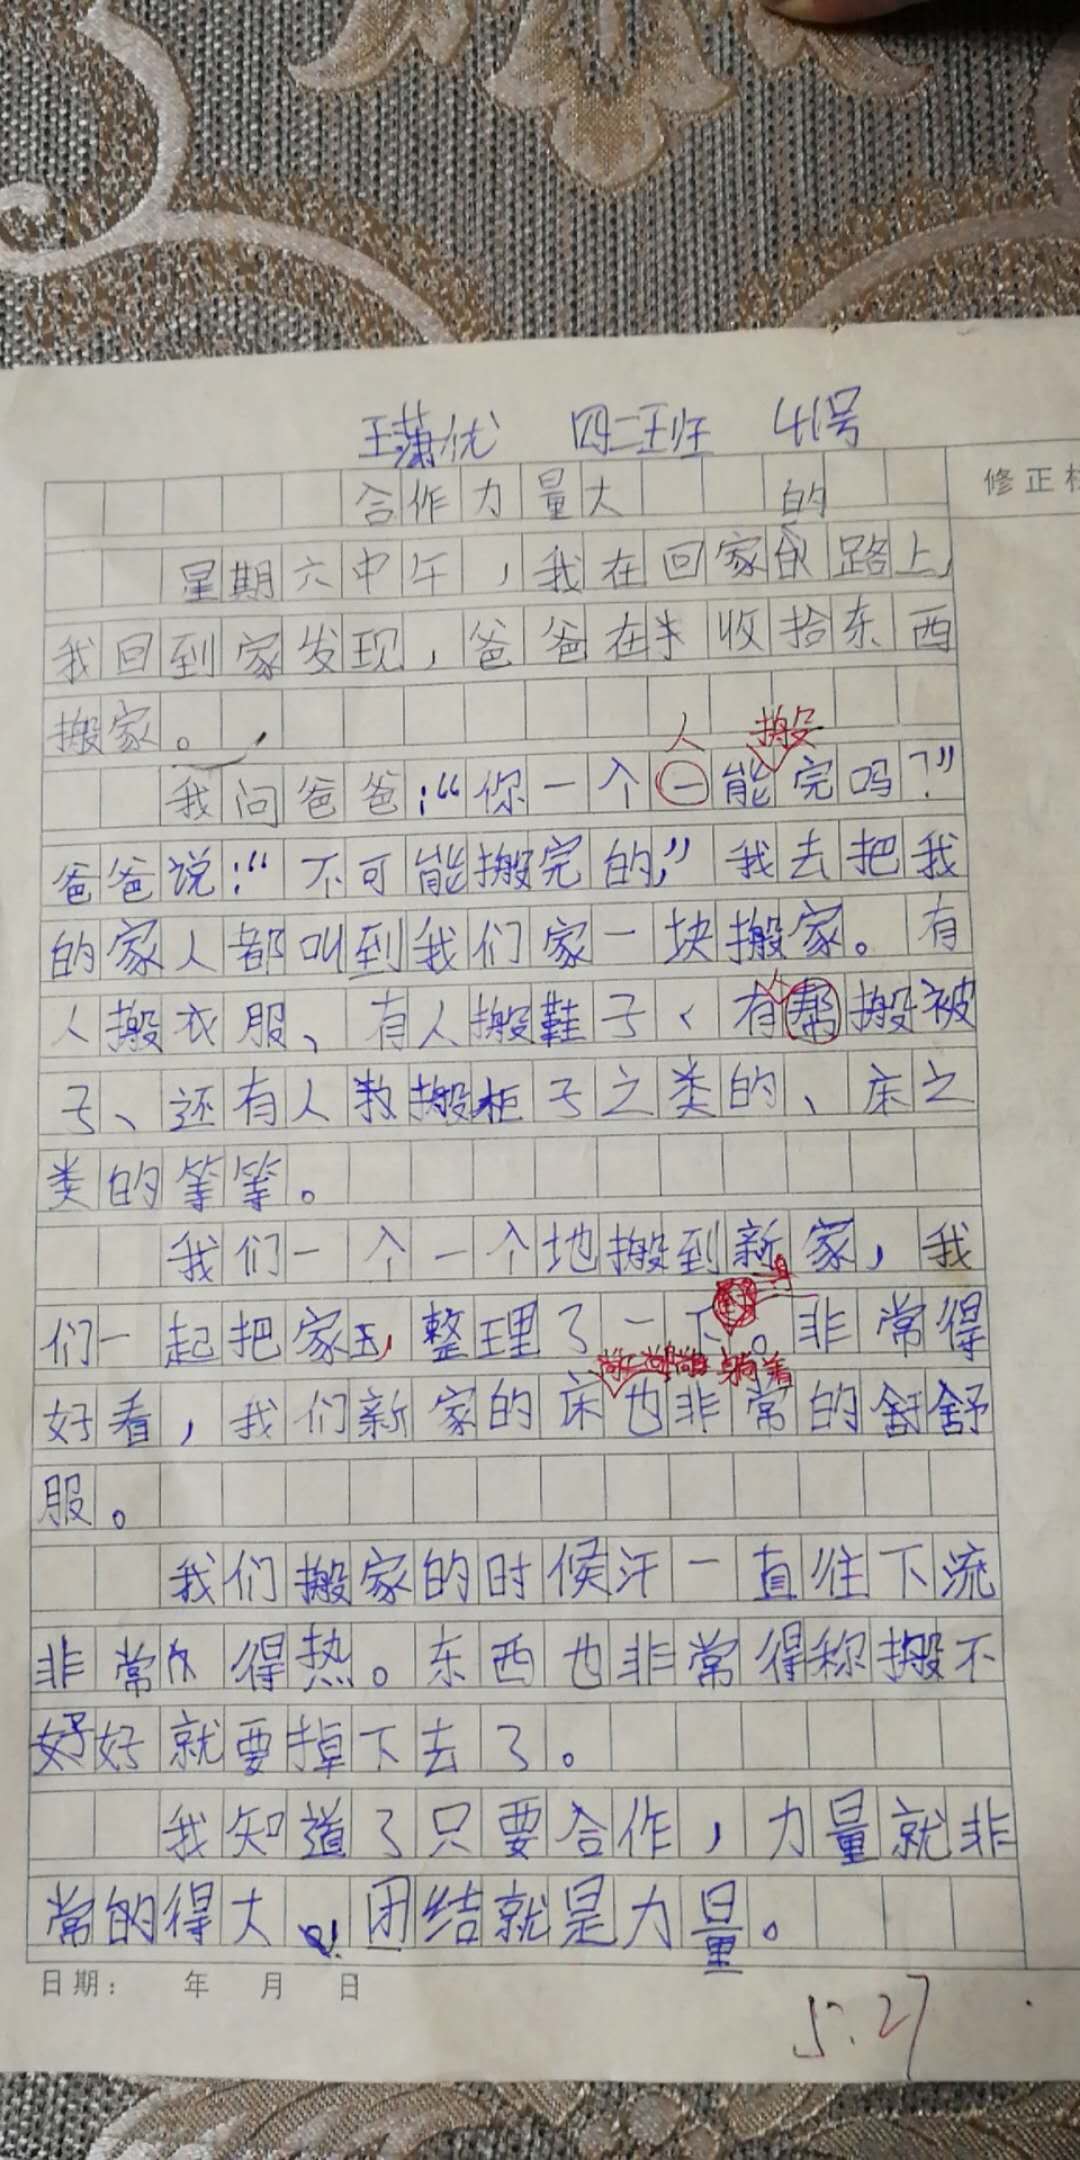 王蒲优 四二班 41号
合作力量大
的
修正栏
星期六中午，我在回家的路上，
我回到家发现，爸爸在收拾东西
搬家。
人 搬
我问爸爸：“你一个一能完吗？”
爸爸说：“不可能搬完的，”我去把我
的家人都叫到我们家一块搬家。有
人搬衣服、有人搬鞋子、有帮搬被
子、还有人搬柜子之类的、床之
类的等等。
我们一个一个地搬到新家，我
们一起把家里整理了一下。非常得
躺着
好看，我们新家的床也非常的舒舒
服。
我们搬家的时候汗一直往下流
非常得热。东西也非常得称搬不
好好就要掉下去了。
我知道了只要合作，力量就非
常的得大，团结就是力量。
日期： 年 月 日
5.27